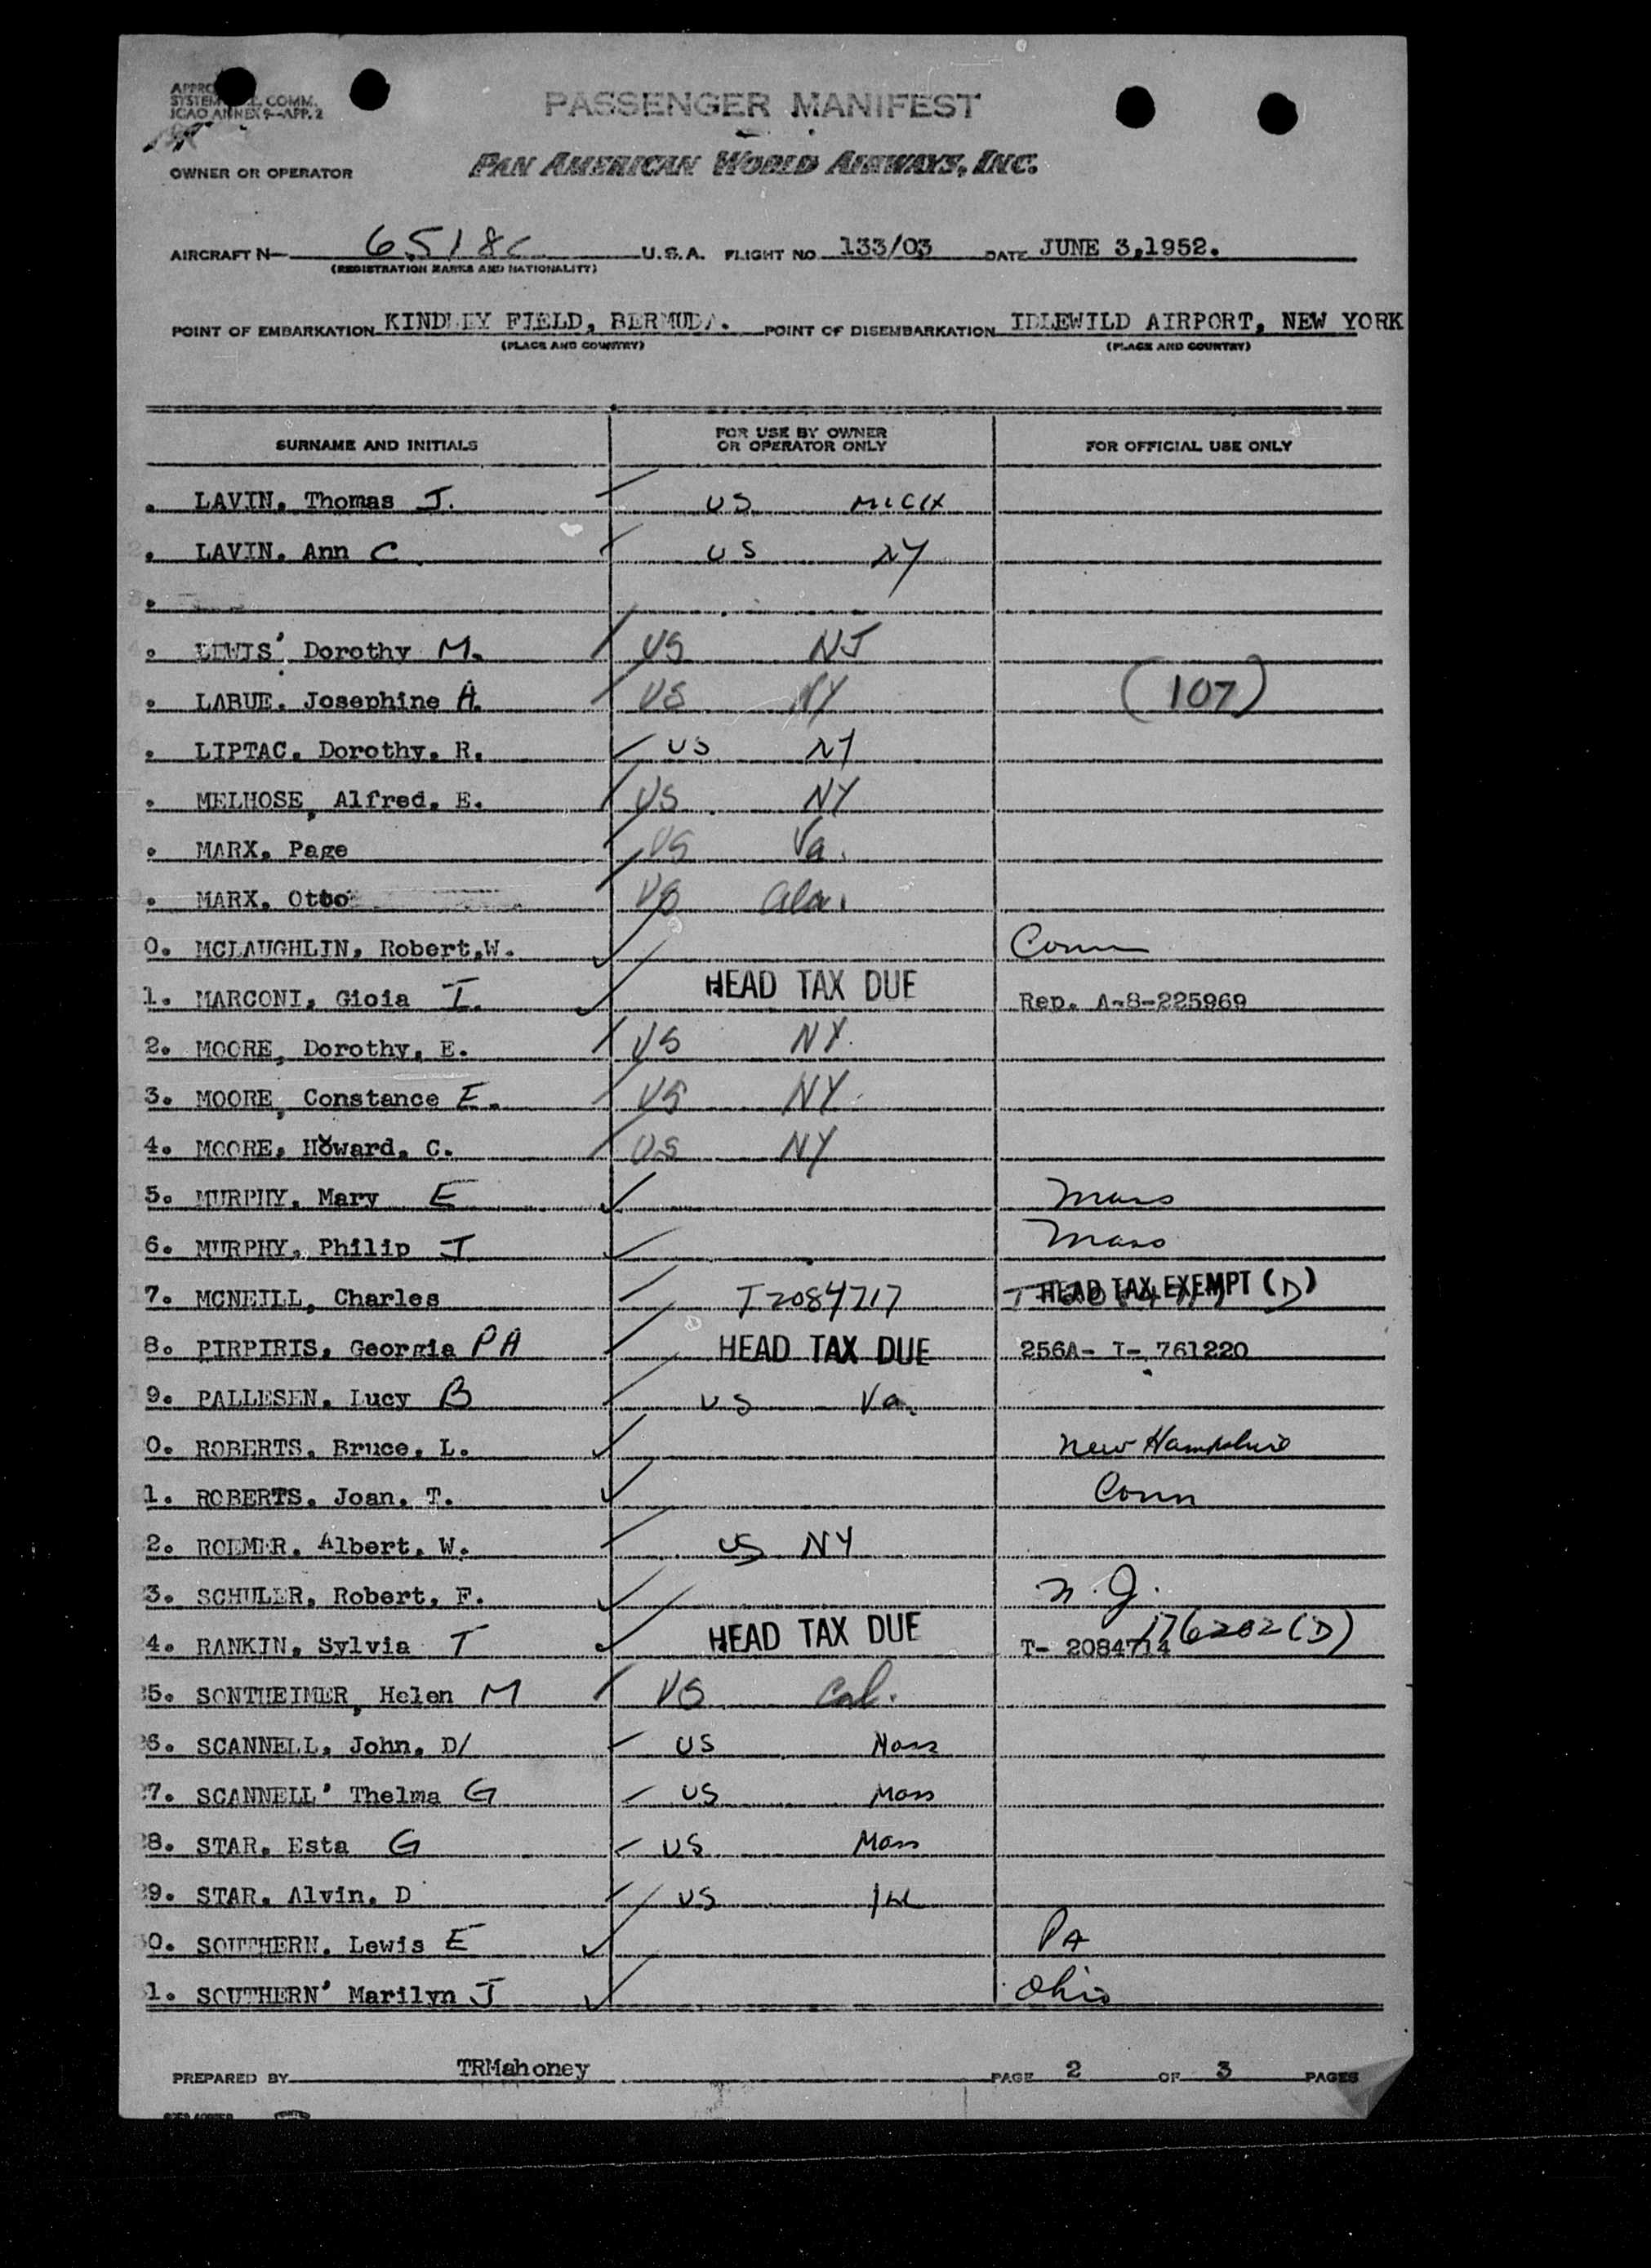 PASSENGER MANIFEST
SYSTEM COMM.
ICAO ANNEX 9-APP. 2
OWNER OR OPERATOR PAN AMERICAN WORLD AIRWAYS, INC.
AIRCRAFT N- 6518C U.S.A. FLIGHT NO 133/03 DATE JUNE 3,1952.
(REGISTRATION MARKS AND NATIONALITY)
POINT OF EMBARKATION KINDLEY FIELD, BERMUDA. POINT OF DISEMBARKATION IDLEWILD AIRPORT, NEW YORK
(PLACE AND COUNTRY) (PLACE AND COUNTRY)
SURNAME AND INITIALS FOR USE BY OWNER OR OPERATOR ONLY FOR OFFICIAL USE ONLY
. LAVIN, Thomas J. US MICH
. LAVIN, Ann C US NY
.
. LEWIS' Dorothy M. US NJ
. LABUE, Josephine A. US NY (107)
. LIPTAC, Dorothy, R. US NY
. MELHOSE, Alfred, E. US NY
. MARX, Page US Va.
. MARX, Otto US Ala.
0. MCLAUGHLIN, Robert,W. Conn
1. MARCONI, Gioia I. HEAD TAX DUE Rep. A-8-225969
2. MOORE, Dorothy, E. US NY.
3. MOORE, Constance E. US NY
4. MOORE, Howard, C. US NY
5. MURPHY, Mary E Mass
6. MURPHY, Philip J Mass
7. MCNEILL, Charles T2084717 HEAD TAX EXEMPT (D)
8. PIRPIRIS, Georgia PA HEAD TAX DUE 256A- I- 761220
9. PALLESEN, Lucy B US Va.
0. ROBERTS, Bruce, L. New Hampshire
1. ROBERTS, Joan, T. Conn
2. ROEMER, Albert, W. US NY
3. SCHULER, Robert, F. N.J.
4. RANKIN, Sylvia T HEAD TAX DUE T- 2084714 176202(D)
25. SONTHEIMER, Helen M US Cal.
26. SCANNELL, John, D/ US Mass
27. SCANNELL' Thelma G US Mass
28. STAR, Esta G US Mass
29. STAR, Alvin, D US
30. SOUTHERN, Lewis E PA
31. SOUTHERN' Marilyn J Ohio
PREPARED BY TRMahoney PAGE 2 OF 3 PAGES